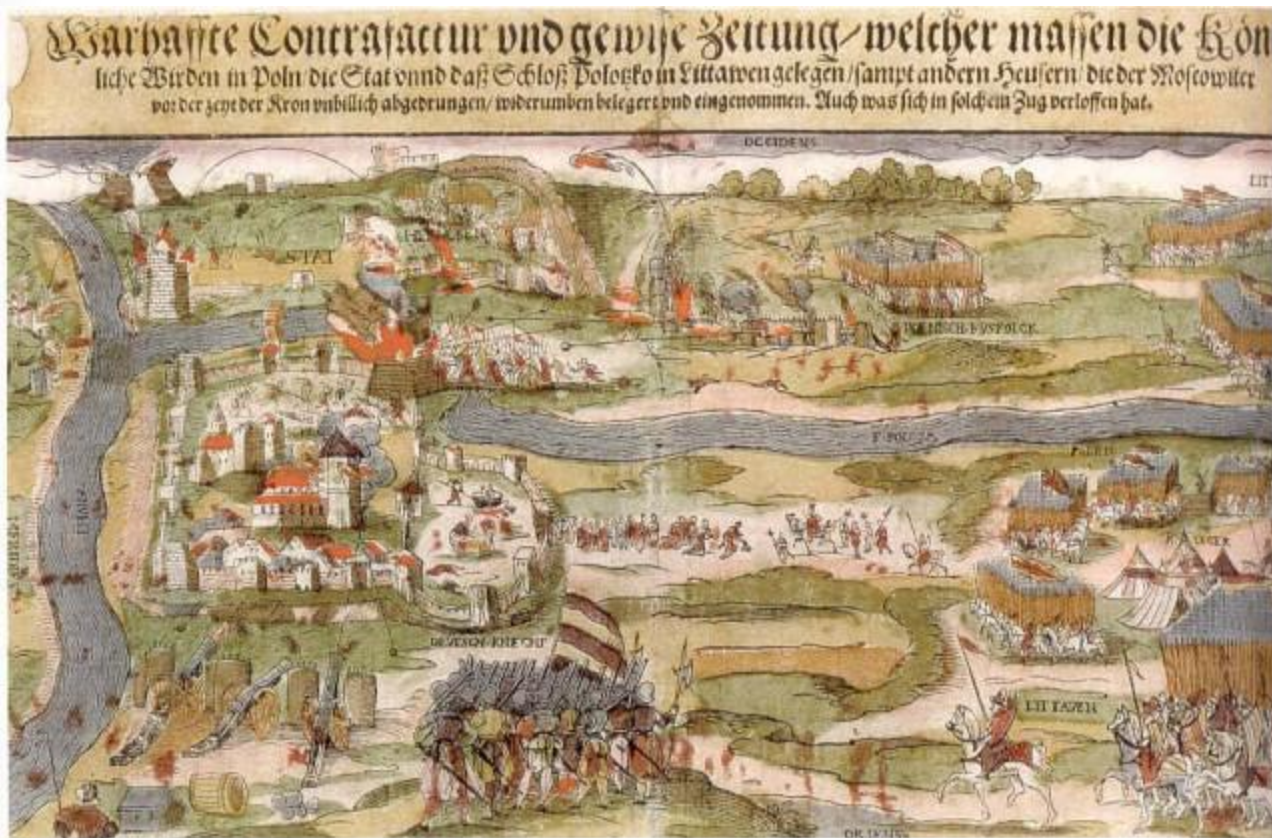 Warhaffte Contrafactur vnd gewisse Zeitung/welcher massen die Kön
liche Wirden in Poln/die Stat vnnd daß Schloß Polotzko in Littawen gelegen/sampt andern Heusern/die der Moscowiter
vor der zeyt der Kron vnbillich abgedrungen/widerumben belegert vnd eingenommen. Auch was sich in solchem Zug verloffen hat.
OCCIDENS
LIT
STAT
POLNISCH FVSFOLCK
LAGER
DEVTSCH KNECHT
LITTAVEN